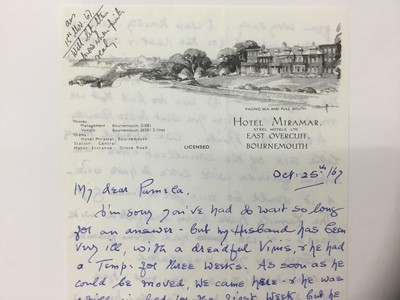 ans
15th Nov. 67
Will let them
know when
ready.
FACING SEA AND FULL SOUTH
HOTEL MIRAMAR,
STEEL HOTELS LTD.
EAST OVERCLIFF,
BOURNEMOUTH
Phones:
Management Bournemouth
Visitors Bournemouth 2 lines
Grams:
Hotel Miramar, Bournemouth
Station: Central
Motor Entrance: Grove Road
LICENSED
Oct: 25th/67
My dear Pamela,
I'm sorry you've had to wait so long
for an answer - but my Husband has been
very ill, with a dreadful Virus, & he had
a Temp: for three weeks. As soon as he
could be moved, we came here & he was
still in bed for the first week, but he